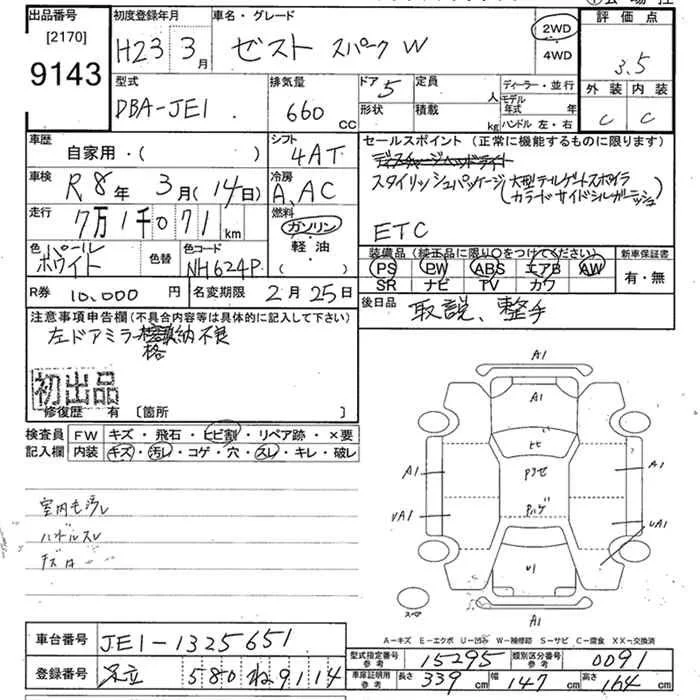 出品番号 初度登録年月 車名・グレード 評価点
[2170] H23年 3月 ゼスト スパーク W 2WD 3.5
9143 4WD
型式 排気量 ドア 5 定員 人 ディーラー・並行 外装 内装
DBA-JE1 660cc 形状 積載 kg モデル年式 年 C C
ハンドル 左・右
車歴 シフト セールスポイント (正常に機能するものに限ります)
自家用・( ) 4AT ディスチャージヘッドライト
車検 R8年 3月(14日) 冷房 A,AC スタイリッシュパッケージ(大型テールゲートスポイラ
カラードサイドシルガーニッシュ)
走行 7万1千071km 燃料 ガソリン ETC
軽油・( )
色 パールホワイト 色替 色コード NH624P 装備品 (純正品に限り○をつけてください) 新車保証書
PS PW ABS エアB AW 有・無
SR ナビ TV カワ
R券 10,000円 名変期限 2月25日 後日品 取説、整手
注意事項申告欄(不具合内容等は具体的に記入して下さい)
左ドアミラー格納不良
初出品
修復歴 有 [箇所 ]
検査員 FW キズ・飛石・ヒビ割・リペア跡・×要
記入欄 内装 キズ・汚レ・コゲ・穴・スレ・キレ・破レ
室内も汚レ
ハンドルスレ
A1
A1
ヒビ
A1 A1
Pハゲ
UA1
U1
スペア A1
A-キズ E-エクボ U-凹ミ W-補修跡 S-サビ C-腐食 XX-交換済
車台番号 JE1-1325651 型式指定番号 参考 15295 類別区分番号 参考 0091
登録番号 足立 580 ね 9114 車庫証明用 参考 長さ 339cm 幅 147cm 高さ 164cm